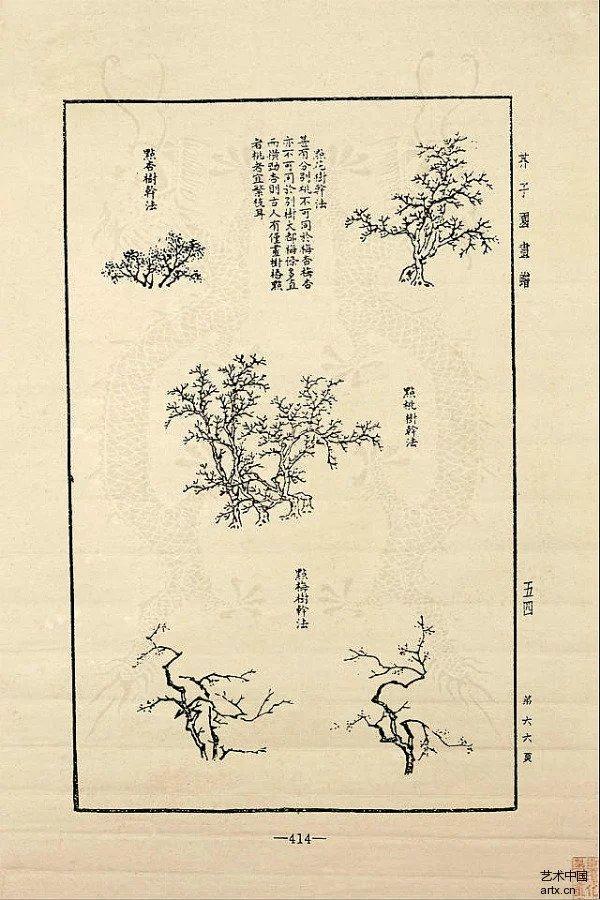 芥子園畫譜
五四
第六六頁
點花樹幹法
甚有分別桃不可同於梅杏梅杏
亦不可同於別樹大都梅條多直
而橫勁杏則古人有僅畫樹樁點
者桃者宜繁枝耳
點杏樹幹法
點桃樹幹法
點梅樹幹法
—414—
艺术中国
artx.cn